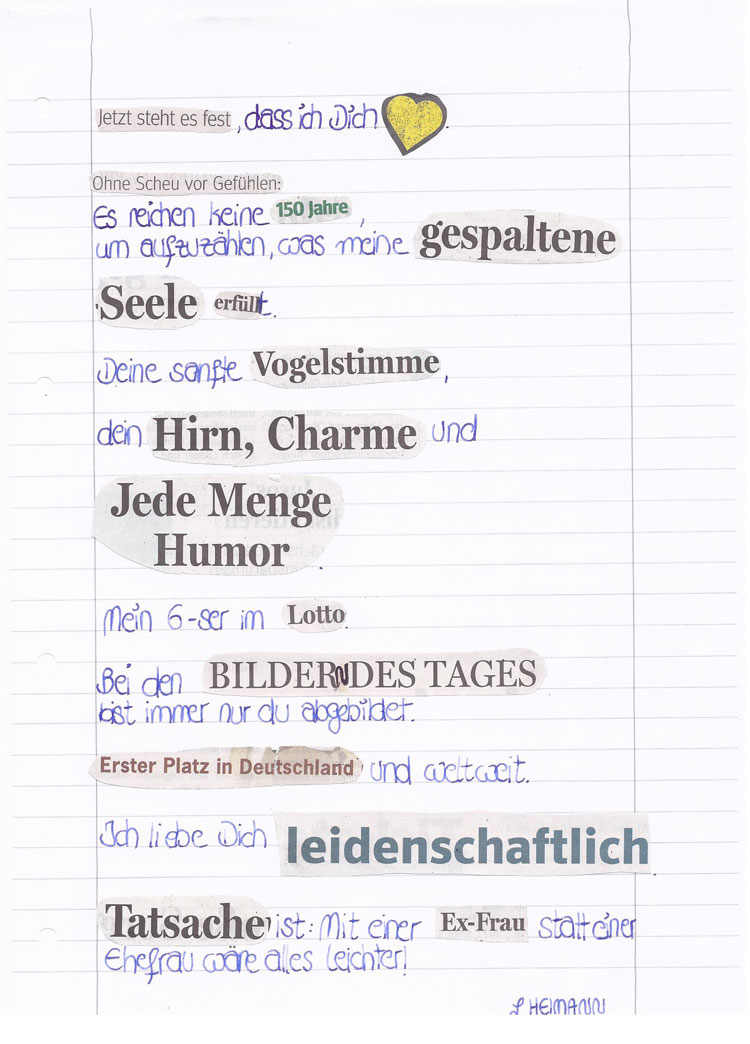 Jetzt steht es fest, dass ich Dich.
Ohne Scheu vor Gefühlen:
Es reichen keine 150 Jahre,
um aufzuzählen, was meine gespaltene
Seele erfüllt.
Deine sanfte Vogelstimme,
dein Hirn, Charme und
Jede Menge
Humor.
Mein 6-ser im Lotto
Bei den BILDERN DES TAGES
bist immer nur du abgebildet.
Erster Platz in Deutschland und weltweit.
Ich liebe Dich leidenschaftlich
Tatsache ist: Mit einer Ex-Frau statt einer
Ehefrau wäre alles leichter!
HEIMANN